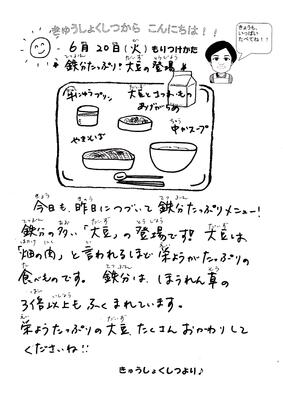 きゅうしょくしつから こんにちは!!
きょうも、
いっぱい
たべてね!!
6月20日(火)もりつけかた
鉄分たっぷり!大豆の登場
牛にゅうプリン
大豆とさつまいもの
あげがらめ
やきそば
中かスープ
今日も、昨日につづいて鉄分たっぷりメニュー!
鉄分の多い「大豆」の登場です!! 大豆は
「畑の肉」と言われるほど栄ようがたっぷりの
食べものです。 鉄分は、ほうれん草の
3倍以上もふくまれています。
栄ようたっぷりの大豆、たくさんおかわりして
くださいね!!
きゅうしょくしつより♪